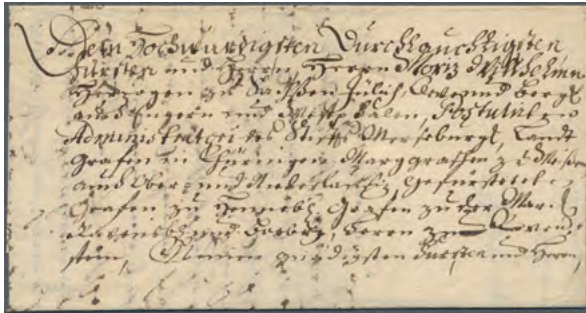 Dem Hochwürdigsten Durchlauchtigsten
Fürsten und Herrn, Herrn Moriz Wilhelmen
Herzogen zu Sachßen Jülich, Cleve und Berg,
auch Engern und Westphalen, Postulirten
Administratori des Stiffts Merseburgk, Landt
Grafen in Thüringen, Marggraffen zu Meißen
auch Ober- und Niederlaußiz, Gefürsteten
Grafen zu Hennebg, Grafen zu der Marck
Ravensbg und Barby, Herrn zum Raven
stein, Meinem gnädigsten Fürsten und Herrn,